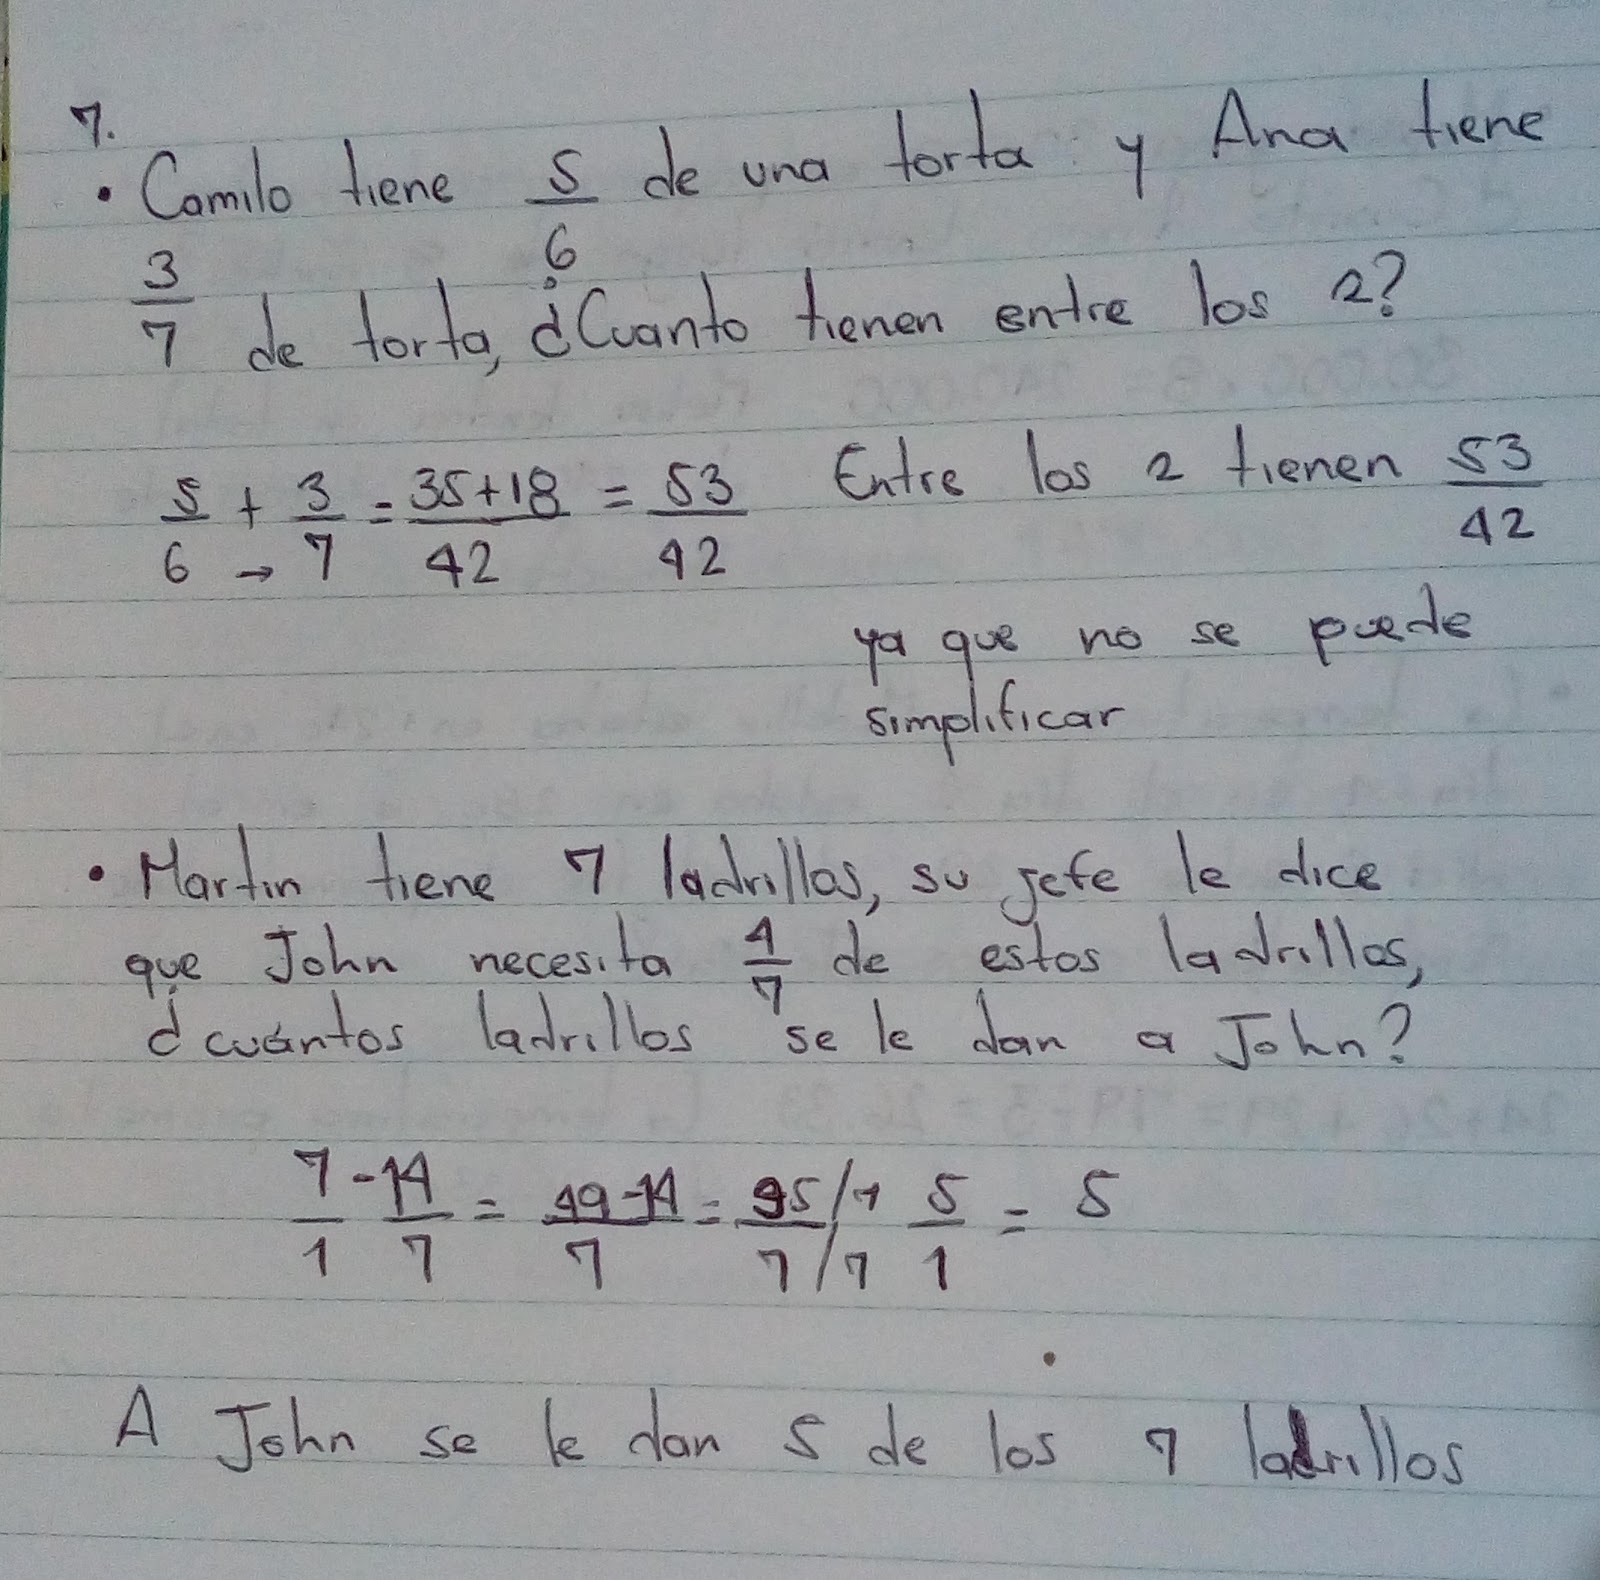 7.
• Camilo tiene 5/6 de una torta y Ana tiene
3/7 de torta, ¿Cuanto tienen entre los 2?
5/6 + 3/7 = 35+18/42 = 53/42 Entre los 2 tienen 53/42
ya que no se puede
simplificar
• Martin tiene 7 ladrillos, su jefe le dice
que John necesita 4/7 de estos ladrillos,
¿cuántos ladrillos se le dan a John?
7/1 - 14/7 = 49-14/7 = 35/7 /7/7 5/1 = 5
A John se le dan 5 de los 7 ladrillos